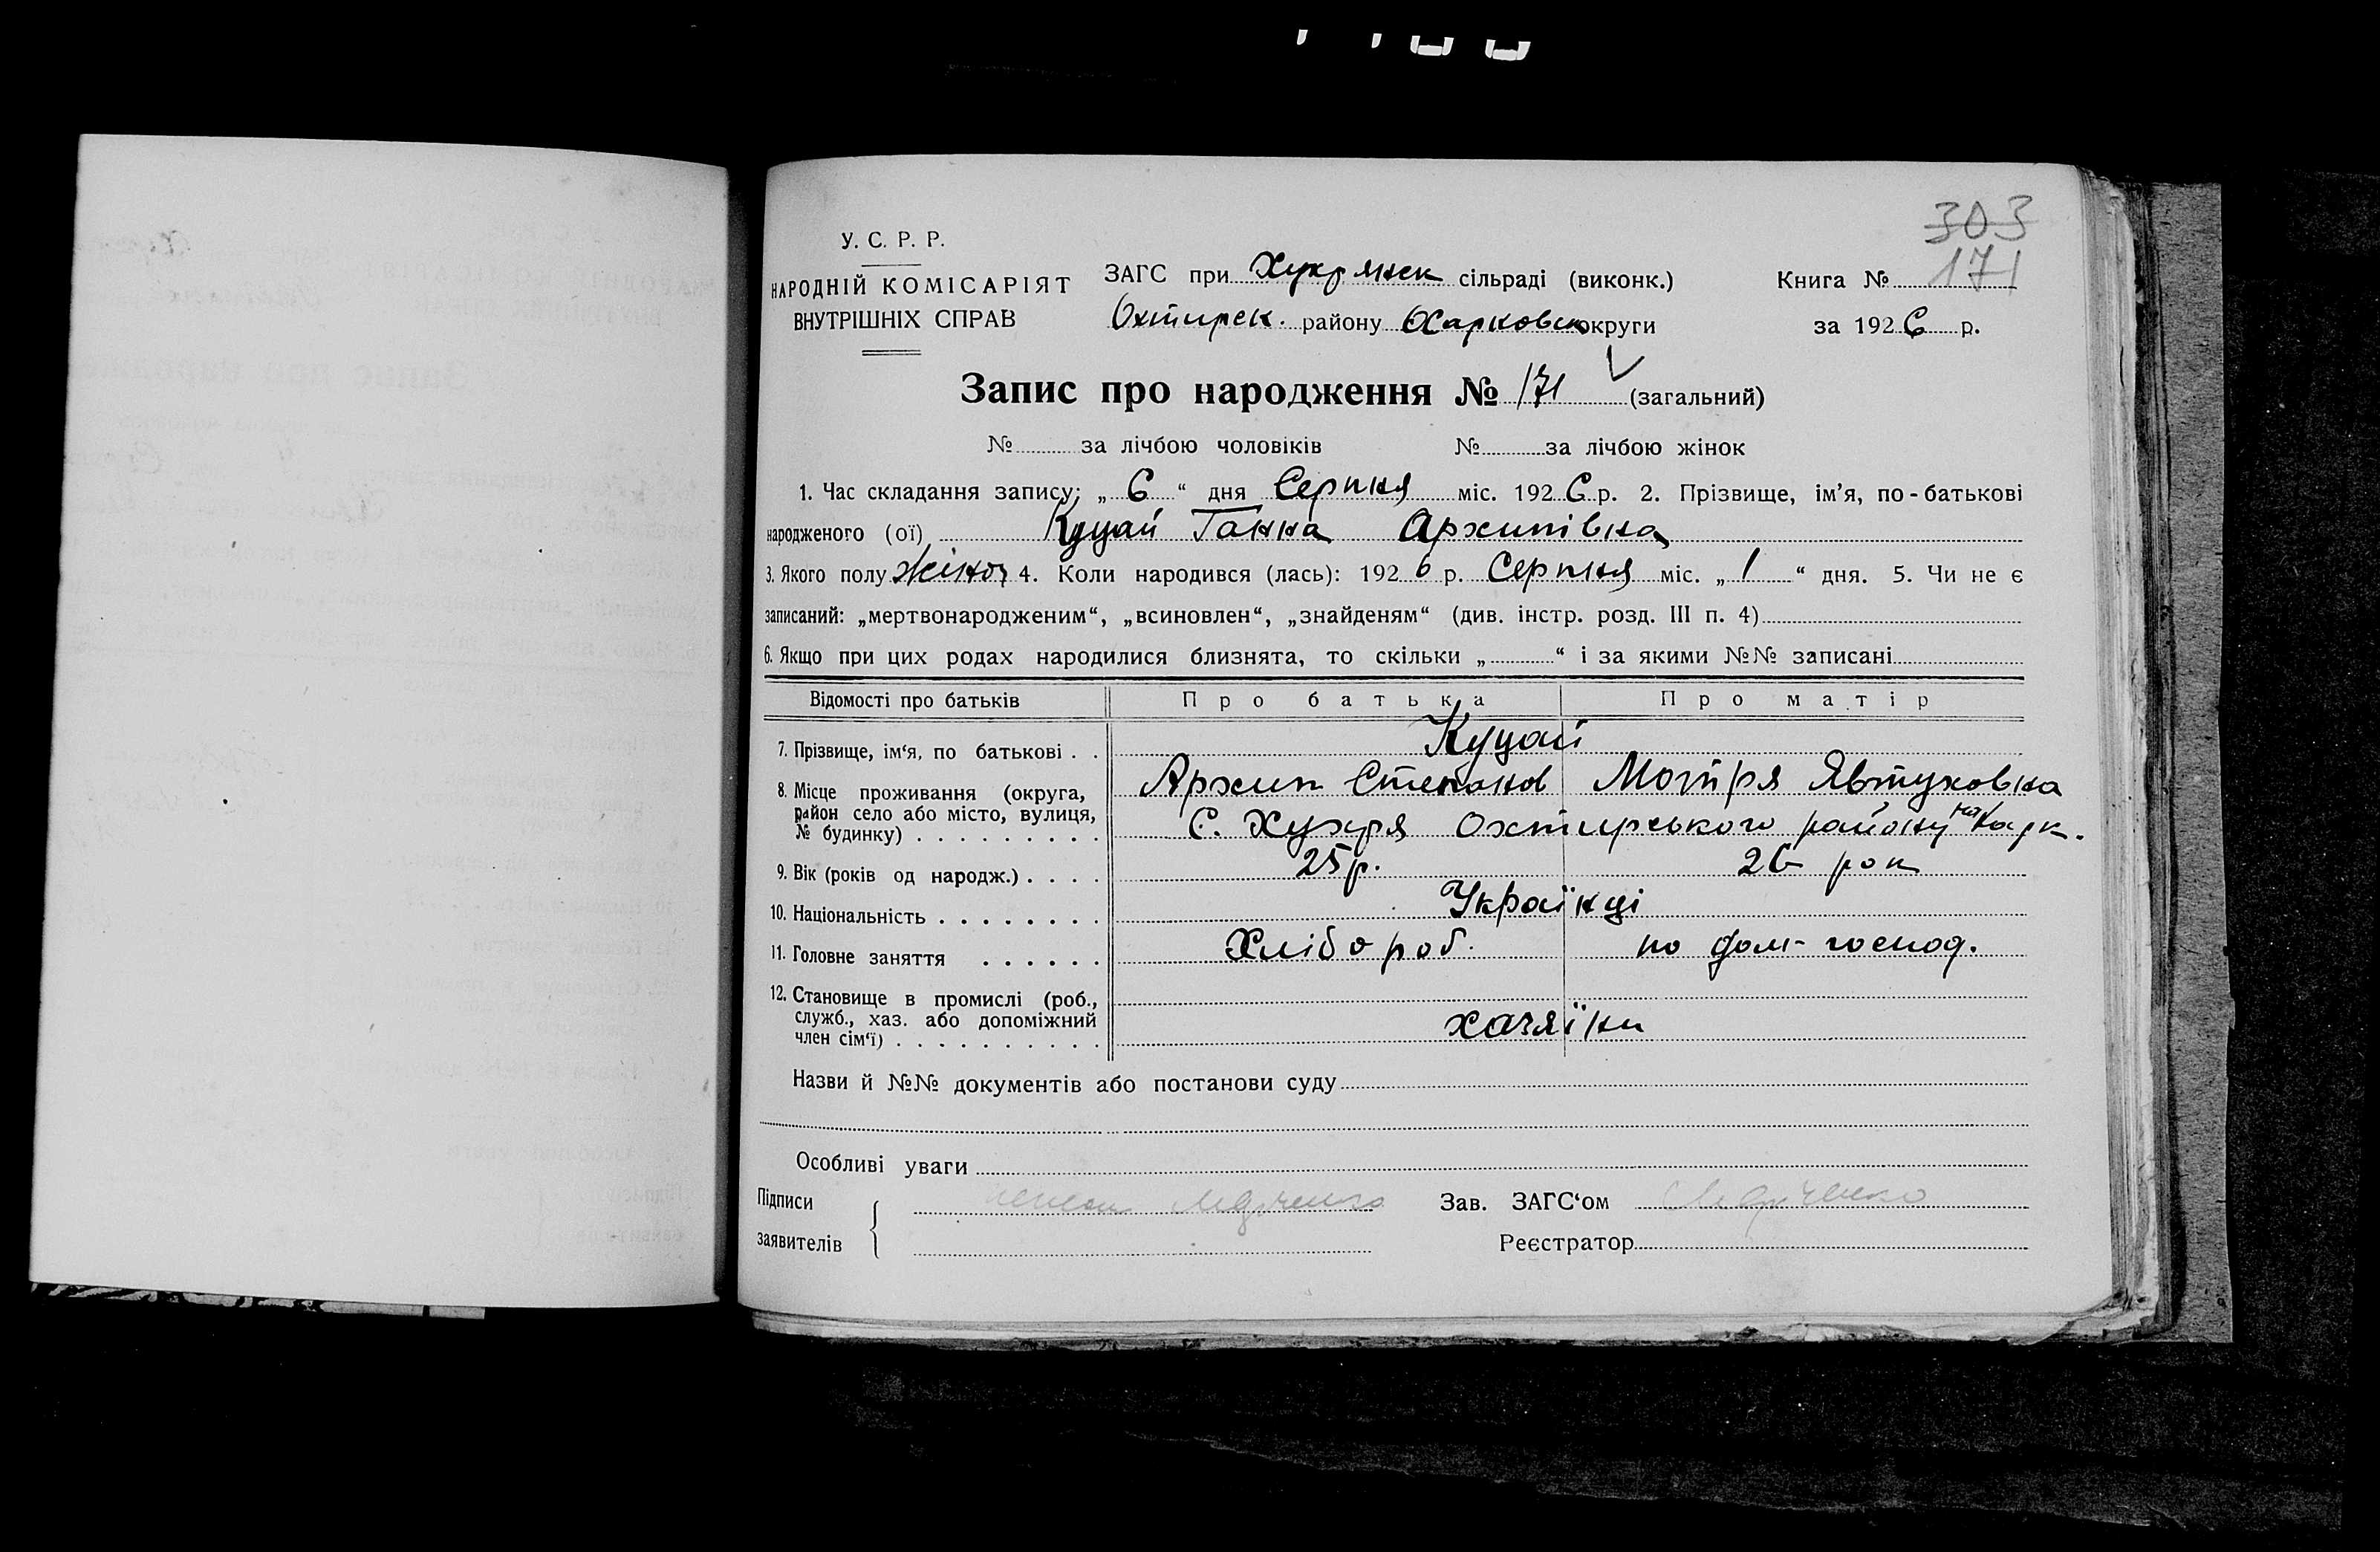 303
У. С. Р. Р.
НАРОДНІЙ КОМІСАРІЯТ
ВНУТРІШНІХ СПРАВ
ЗАГС при Хухрянск сільраді (виконк.)
Охтирск. району Харковск округи
Книга № 171
за 1926 р.
Запис про народження № 171 (загальний)
№ за лічбою чоловіків № за лічбою жінок
1. Час складання запису: „6“ дня Серпня міс. 1926 р. 2. Прізвище, ім’я, по-батькові
народженого (ої) Куцай Ганна Архипівна
3. Якого полу жіноч 4. Коли народився (лась): 1926 р. Серпня міс. „1“ дня. 5. Чи не є
записаний: „мертвонародженим“, „всиновлен“, „знайденям“ (див. інстр. розд. III п. 4)
6. Якщо при цих родах народилися близнята, то скільки „ “ і за якими №№ записані
Відомості про батьків Про батька Про матір
7. Прізвище, ім‘я, по батькові . . Куцаи
Архип Степанов Мотря Явтуховна
8. Місце проживання (округа,
район село або місто, вулиця,
№ будинку) . . . . . . . . . С. Хухря Охтирського району на Харк.
9. Вік (років од народж.) . . . . 25 р. 26 рок
10. Національність . . . . . . . . Українці
11. Головне заняття . . . . . . Хлібороб. по дом-господ.
12. Становище в промислі (роб.,
служб., хаз. або допоміжний
член сім‘ї) . . . . . . . . . . хазяїни
Назви й №№ документів або постанови суду
Особливі уваги
Підписи
заявителів
Зав. ЗАГС‘ом
Реєстратор